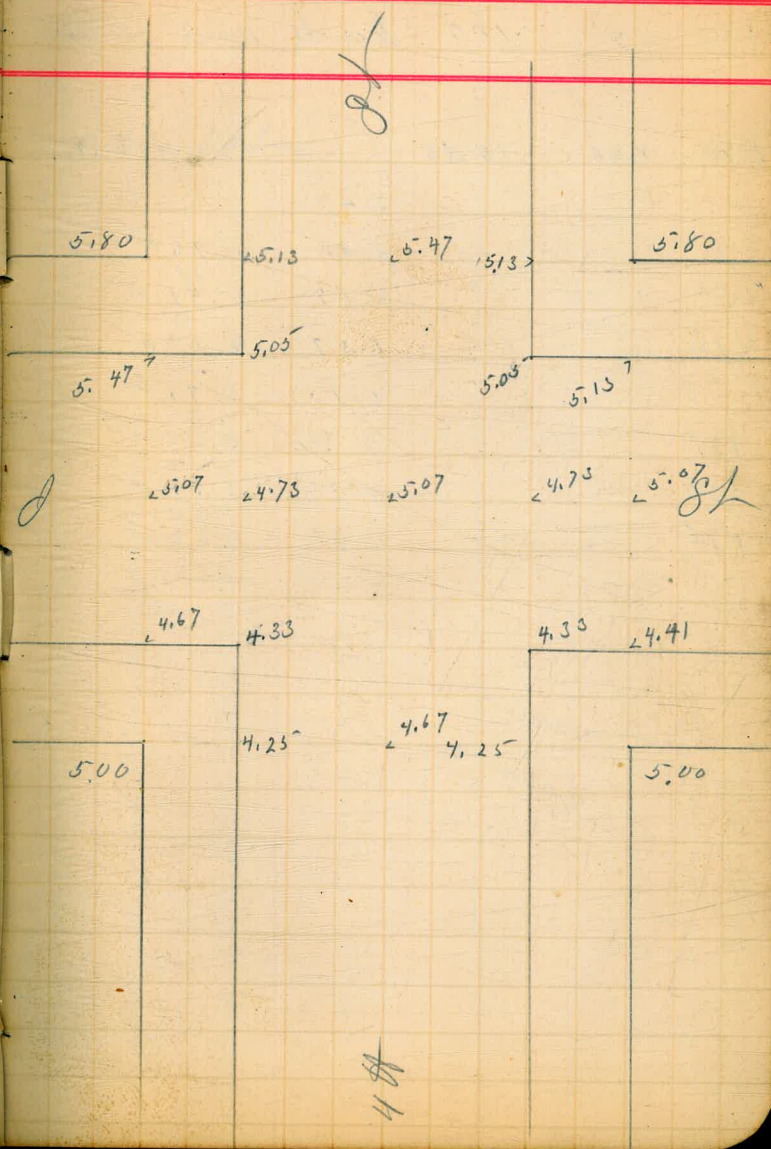 St
5.80 5.13 5.47 5.13 5.80
5.05
5.47 5.05 5.13
5.07 4.73 5.07 4.73 5.07 St
4.67 4.33 4.33 4.41
4.67
4.25 4.25
5.00 5.00